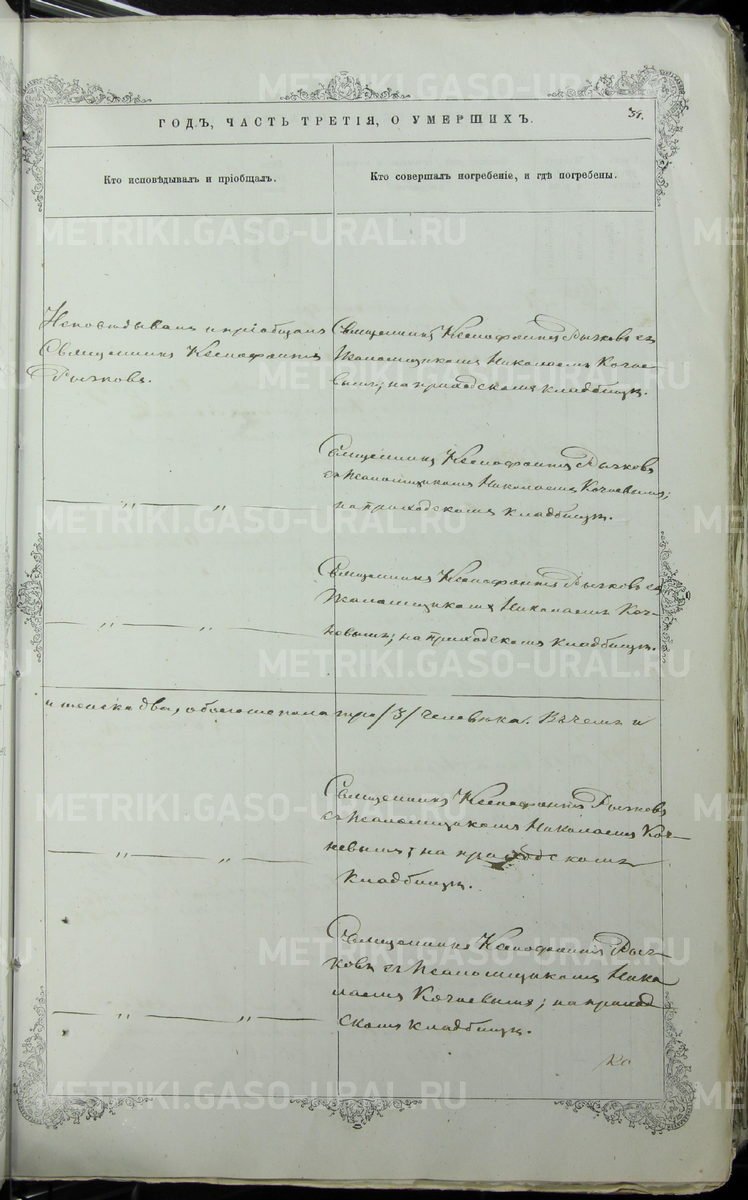 34.
ГОДЪ, ЧАСТЬ ТРЕТІЯ, О УМЕРШИХЪ.
Кто исповѣдывалъ и пріобщалъ.
Кто совершалъ погребеніе, и гдѣ погребены.
Исповѣдывалъ и пріобщалъ
Священникъ Ксенофонтъ
Рычковъ.
Священникъ Ксенофонтъ Рычковъ съ
Псаломщикомъ Николаемъ
на приходскомъ кладбищѣ.
— „ — „ —
Священникъ Ксенофонтъ Рычковъ
съ Псаломщикомъ Николаемъ
на приходскомъ кладбищѣ.
— „ — „ —
Священникъ Ксенофонтъ Рычковъ съ
Псаломщикомъ Николаемъ
на приходскомъ кладбищѣ.
и женска два, обоего пола три /3/ человѣка. Въ чемъ и
— „ — „ —
Священникъ Ксенофонтъ Рычковъ
съ Псаломщикомъ Николаемъ
на приходскомъ
кладбищѣ.
— „ — „ —
Священникъ Ксенофонтъ Рыч-
ковъ съ Псаломщикомъ Нико
лаемъ на приход
скомъ кладбищѣ.
METRIKI.GASO-URAL.RU